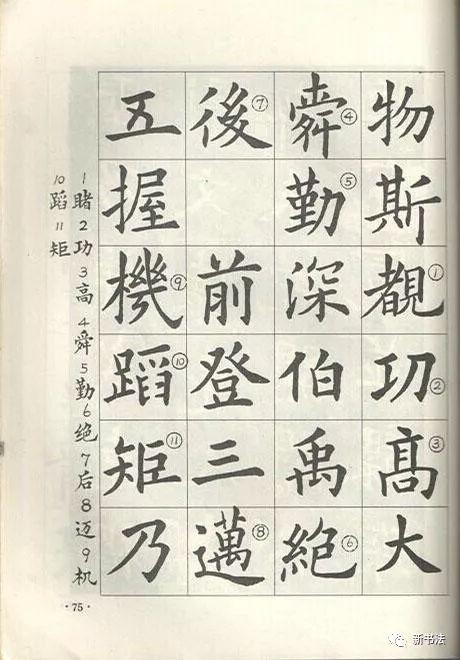 物斯覩①功②髙③大
舜④勤⑤深伯禹絶⑥
後⑦前登三邁⑧
五握機⑨蹈⑩矩⑪乃
1睹2功3高4舜5勤6绝7后8迈9机
10蹈11矩
·75·
新书法